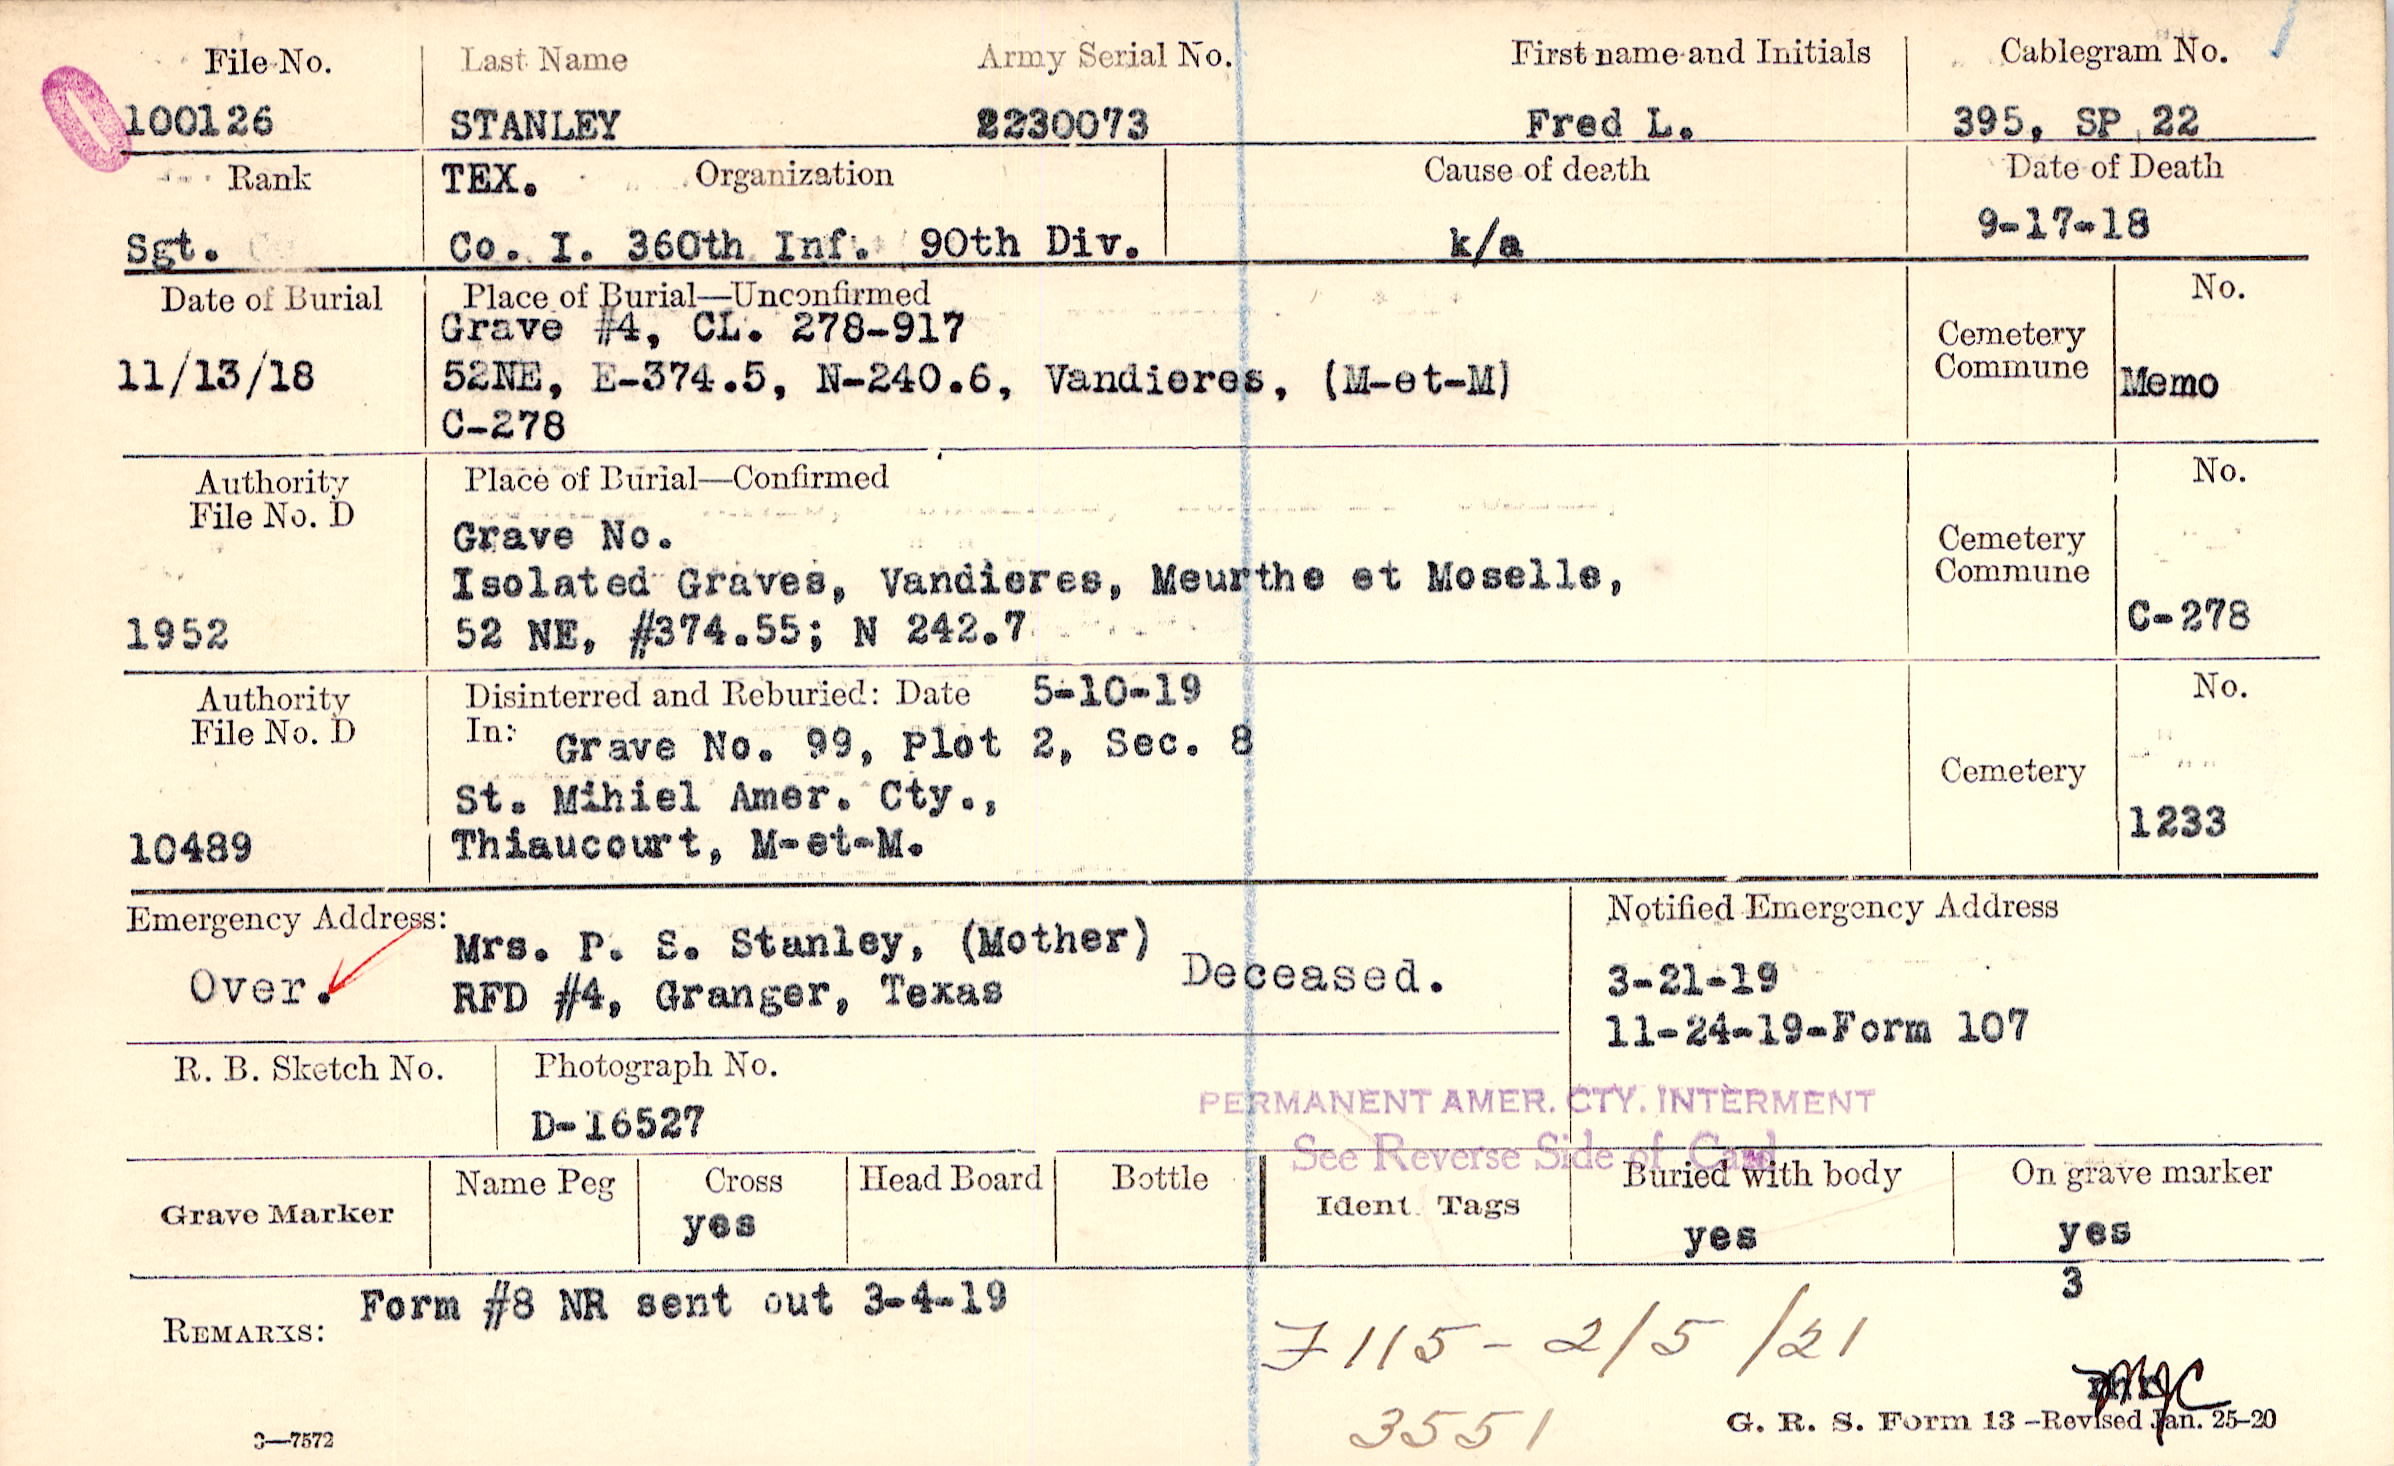 File No. Last Name Army Serial No. First name and Initials Cablegram No.
100126 STANLEY 2230073 Fred L. 395, SP 22
Rank TEX. Organization Cause of death Date of Death
Sgt. Co. I. 360th Inf. 90th Div. k/a 9-17-18
Date of Burial Place of Burial—Unconfirmed No.
Grave #4, CL. 278-917
11/13/18 52NE, E-374.5, N-240.6, Vandieres, (M-et-M) Cemetery Commune Memo
C-278
Authority File No. D Place of Burial—Confirmed No.
Grave No.
Isolated Graves, Vandieres, Meurthe et Moselle, Cemetery Commune
1952 52 NE, #374.55; N 242.7 C-278
Authority File No. D Disinterred and Reburied: Date 5-10-19 No.
In: Grave No. 99, Plot 2, Sec. 8
St. Mihiel Amer. Cty., Cemetery
10489 Thiaucourt, M-et-M. 1233
Emergency Address: Notified Emergency Address
Mrs. P. S. Stanley, (Mother) Deceased.
Over. RFD #4, Granger, Texas 3-21-19
11-24-19-Form 107
R. B. Sketch No. Photograph No.
D-16527
PERMANENT AMER. CTY. INTERMENT
See Reverse Side of Card
Grave Marker Name Peg Cross Head Board Bottle Ident. Tags Buried with body On grave marker
yes yes yes
3
REMARKS: Form #8 NR sent out 3-4-19
F 115 - 2/5/21
3551
3—7572 G. R. S. Form 13 -Revised Jan. 25-20